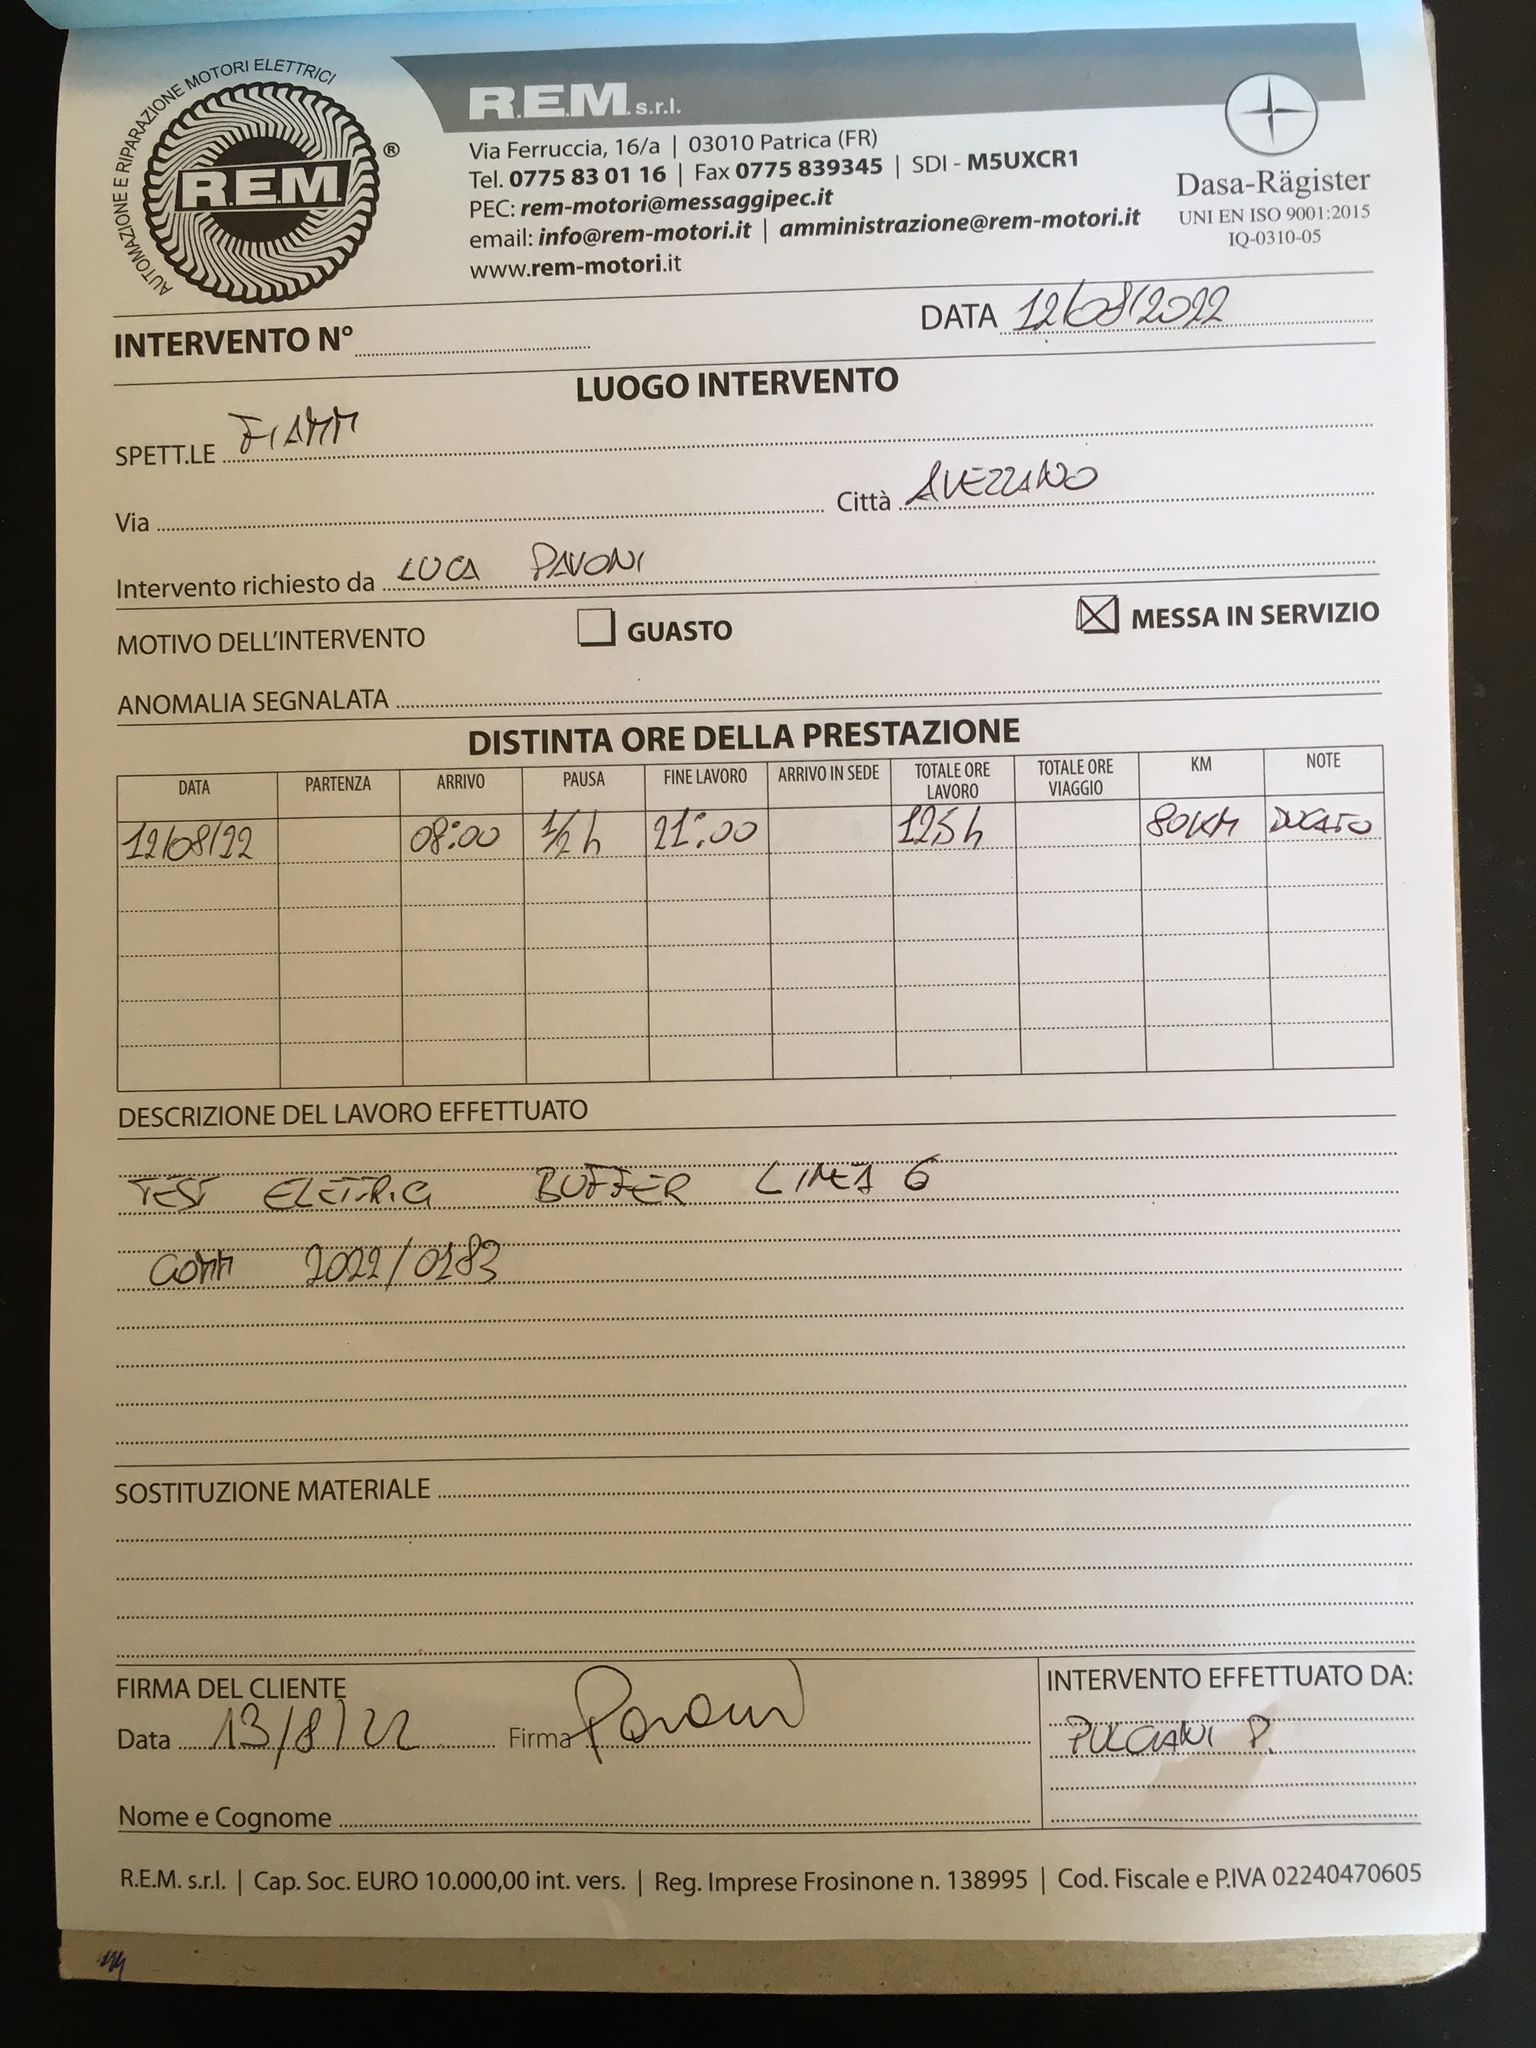 AUTOMAZIONE E RIPARAZIONE MOTORI ELETTRICI
R.E.M. ®
R.E.M. s.r.l.
Via Ferruccia, 16/a | 03010 Patrica (FR)
Tel. 0775 83 01 16 | Fax 0775 839345 | SDI - M5UXCR1
PEC: rem-motori@messaggipec.it
email: info@rem-motori.it | amministrazione@rem-motori.it
www.rem-motori.it
Dasa-Rägister
UNI EN ISO 9001:2015
IQ-0310-05
INTERVENTO N°
DATA 12/08/2022
LUOGO INTERVENTO
SPETT.LE FIAMM
Via Città AVEZZANO
Intervento richiesto da LUCA PAVONI
MOTIVO DELL'INTERVENTO GUASTO MESSA IN SERVIZIO
ANOMALIA SEGNALATA
DISTINTA ORE DELLA PRESTAZIONE
DATA PARTENZA ARRIVO PAUSA FINE LAVORO ARRIVO IN SEDE TOTALE ORE LAVORO TOTALE ORE VIAGGIO KM NOTE
12/08/22 08:00 1/2 h 21:00 12,5 h 80 KM DUCATO
DESCRIZIONE DEL LAVORO EFFETTUATO
TEST ELETTRICI BUFFER LINEA 6
COMM 2022/0183
SOSTITUZIONE MATERIALE
FIRMA DEL CLIENTE
Data 13/8/22 Firma Pavoni
Nome e Cognome
INTERVENTO EFFETTUATO DA:
PULCIANI P.
R.E.M. s.r.l. | Cap. Soc. EURO 10.000,00 int. vers. | Reg. Imprese Frosinone n. 138995 | Cod. Fiscale e P.IVA 02240470605